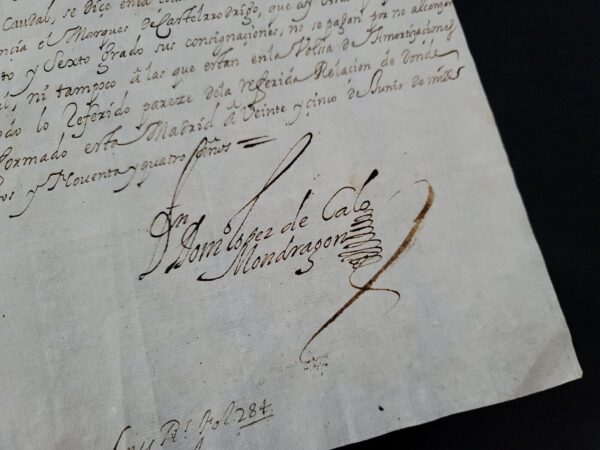 Caudal, se Diçe en la
el Marques de Castelrrodrigo, que asi
to y Sexto grado sus consignaçiones, no se pagan por no alcançar
el, ni tampoco â las que estan en la Volsa de Amortizaçiones
odo lo Referido pareze dela referida Relacion de donde
formado esta Madrid â Veinte y çinco de Junio de mill
os y Noventa y quatro años =
Dn Domo Lopez de Calo
Mondragon
Fol. 284